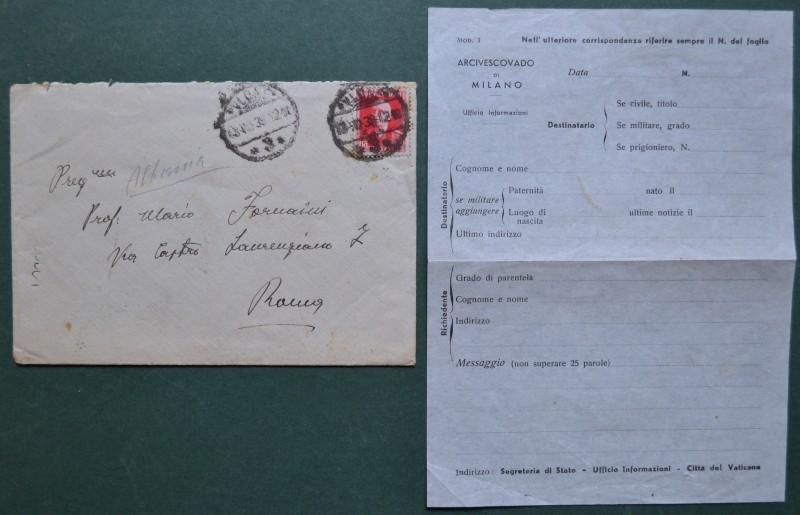 Preg
Albania
Prof. Mario Fornaini
Via Castro Laurenziano 7
Roma
Mod. 3 Nell'ulteriore corrispondenza riferire sempre il N. del foglio
ARCIVESCOVADO
DI
MILANO
Data N.
Ufficio Informazioni
Destinatario
Se civile, titolo
Se militare, grado
Se prigioniero, N.
Destinatario
Cognome e nome
se militare aggiungere
Paternità nato il
Luogo di nascita ultime notizie il
Ultimo indirizzo
Richiedente
Grado di parentela
Cognome e nome
Indirizzo
Messaggio (non superare 25 parole)
Indirizzo: Segreteria di Stato - Ufficio Informazioni - Città del Vaticano